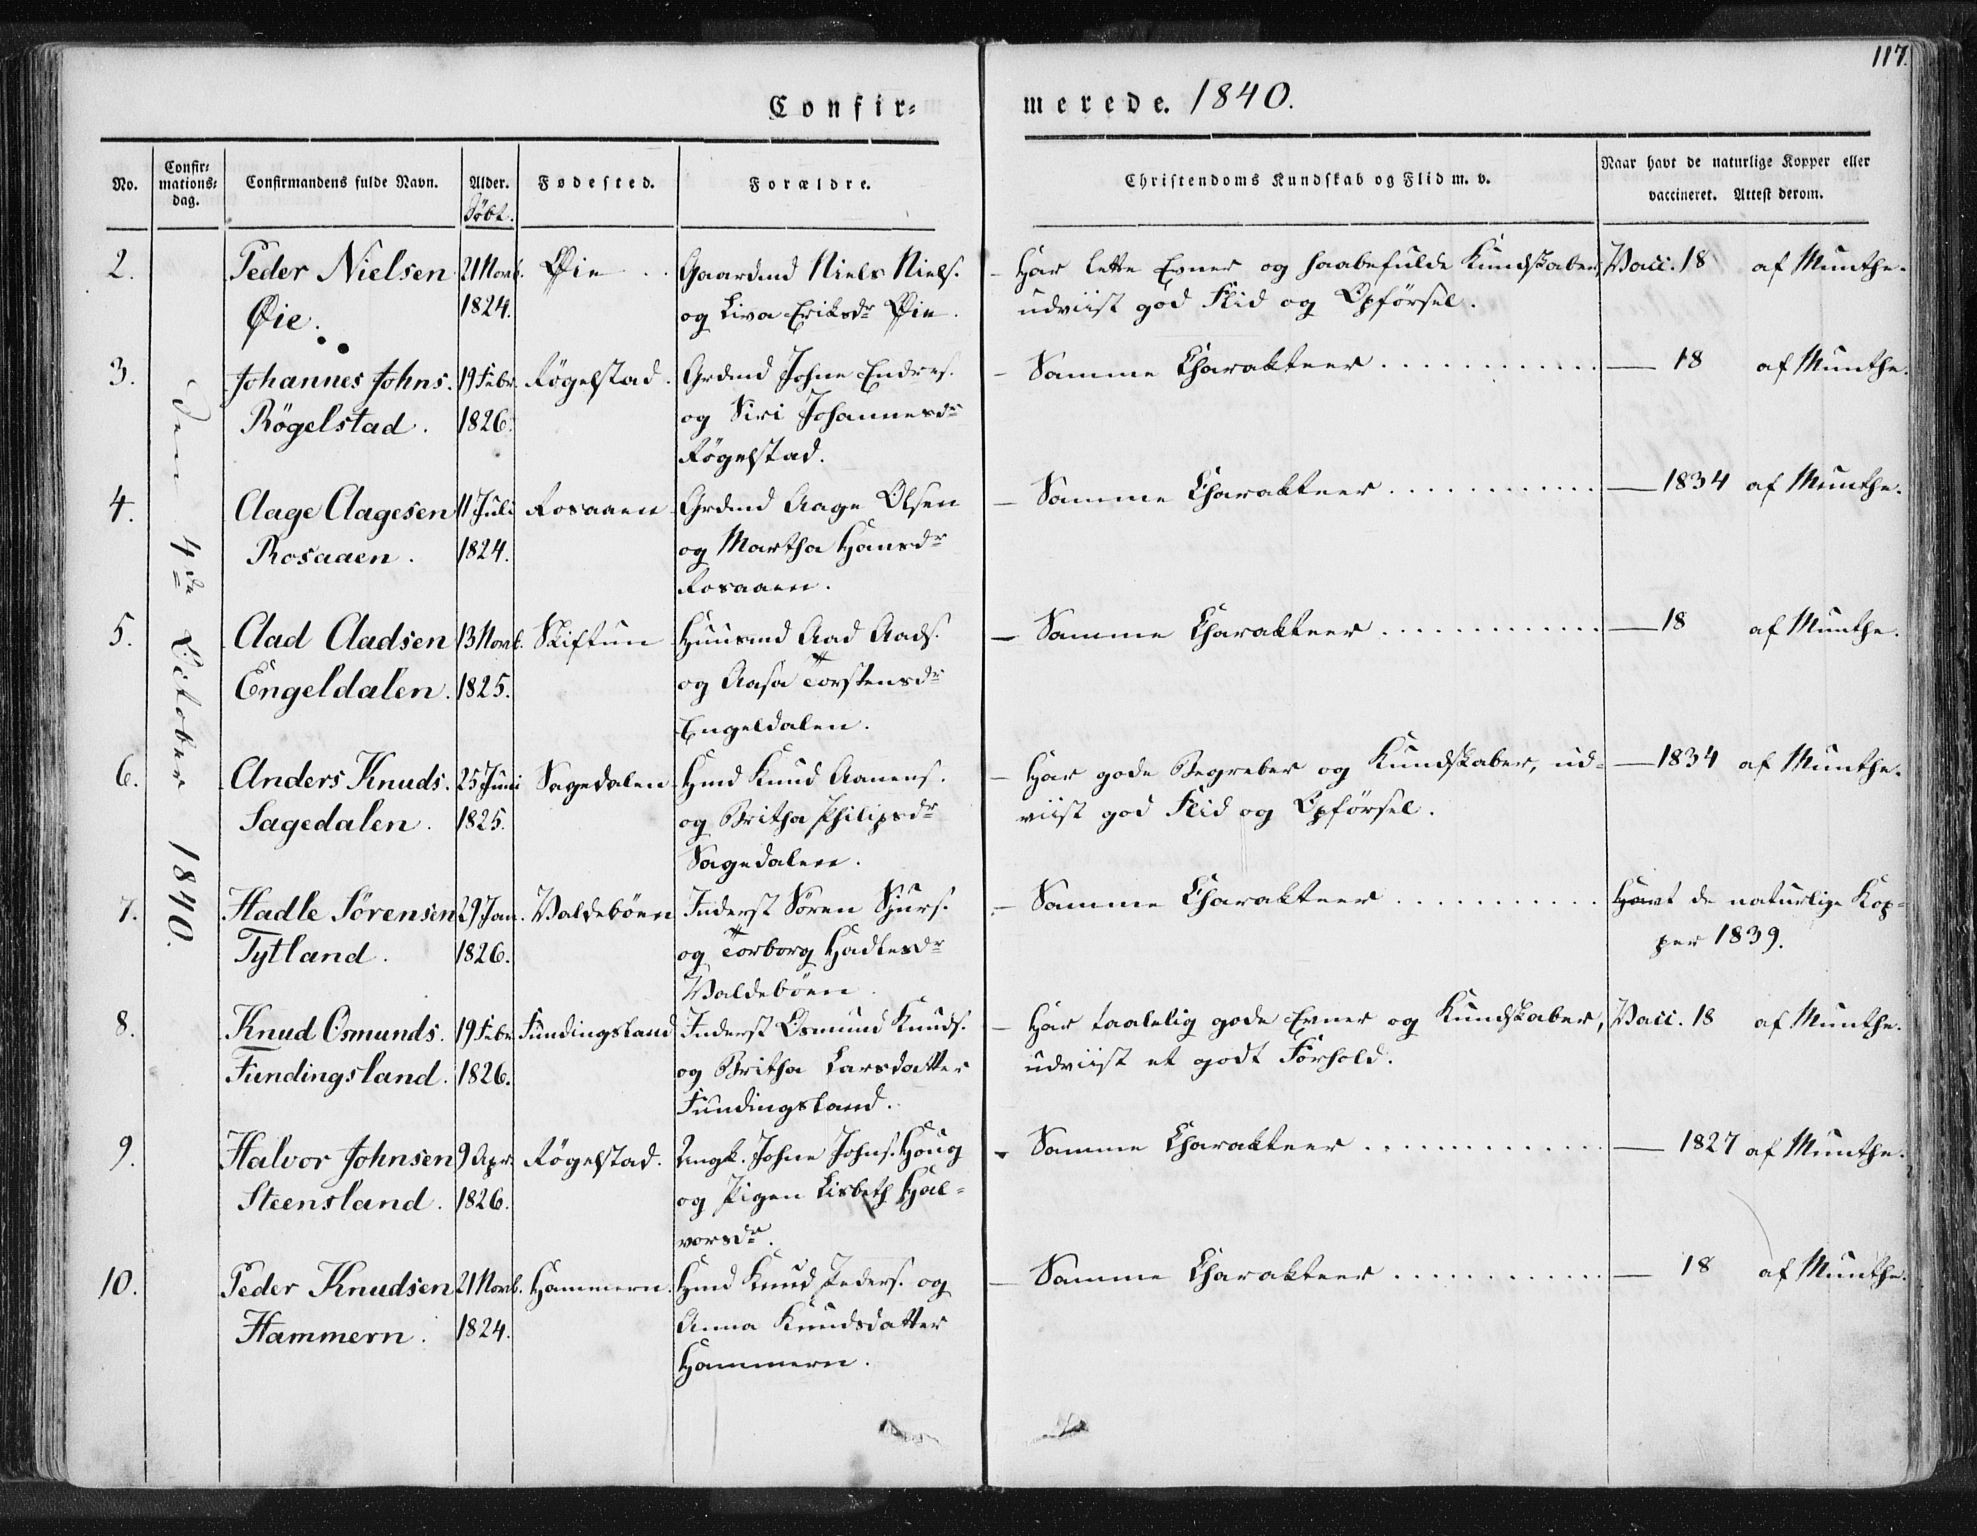 117.
Confir-
merede. 1840.
No.
Confir-
mations-
dag.
Confirmandens fulde Navn.
Alder.
Døbt.
Fødested.
Forældre.
Christendoms Kundskab og Flid m. v.
Naar havt de naturlige Kopper eller
vaccineret. Attest derom.
den 4de October 1840.
2. Peder Nielsen 21 Novb. Øie . . Gaardmd Niels Niels. – Har lette Evner og haabefulde Kundskaber, Vacc. 18 af Munthe.
Øie. 1824. og Liva Eriksdr Øie. udviist god Flid og Opførsel.
3. Johannes Johns. 19 Febr. Røgelstad. Grdmd Johne Enders. – Samme Charakteer . . . . . . . . . . . . — 18 af Munthe.
Rögelstad. 1826. og Siri Johannesdr
Røgelstad.
4. Aage Aagesen 11 Juli Rosaaen Grdmd Aage Olsen – Samme Charakteer . . . . . . . . . . . . — 1834 af Munthe.
Rosaaen. 1824. og Martha Hansdr
Rosaaen.
5. Aad Aadsen 13 Novb. Skiftun Huusmd Aad Aads. – Samme Charakteer . . . . . . . . . . . . — 18 af Munthe.
Engeldalen. 1825. og Aasa Torstensdr
Engeldalen.
6. Anders Knuds. 25 Juni Sagedalen Hmd Knud Aanens. – Har gode Begreber og Kundskaber, ud- — 1834 af Munthe.
Sagedalen. 1825. og Britha Philipsdr viist god Flid og Opførsel.
Sagedalen.
7. Hadle Sörensen 29 Jan. Valdebøen Inderst Sören Sjurs. – Samme Charakteer . . . . . . . . . . . Havt de naturlige Kop-
Tytland. 1826. og Torborg Hadlesdr per 1839.
Valdebøen.
8. Knud Osmunds. 19 Febr. Fundingsland Inderst Osmund Knuds. – Har taalelig gode Evner og Kundskaber, Vacc. 18 af Munthe.
Fundingsland. 1826. og Britha Larsdatter udviist et godt Forhold.
Fundingsland.
9. Halvor Johnsen 9 Apr. Røgelstad. Ungk. Johne Johns. Houg – Samme Charakteer . . . . . . . . . . . . — 1827 af Munthe.
Steensland. 1826. og Pigen Lisbeth Hal-
vorsdr.
10. Peder Knudsen 21 Novb. Hammern. Hmd Knud Peders. og – Samme Charakteer . . . . . . . . . . . . — 18 af Munthe.
Hammern. 1824. Anna Knudsdatter
Hammern.